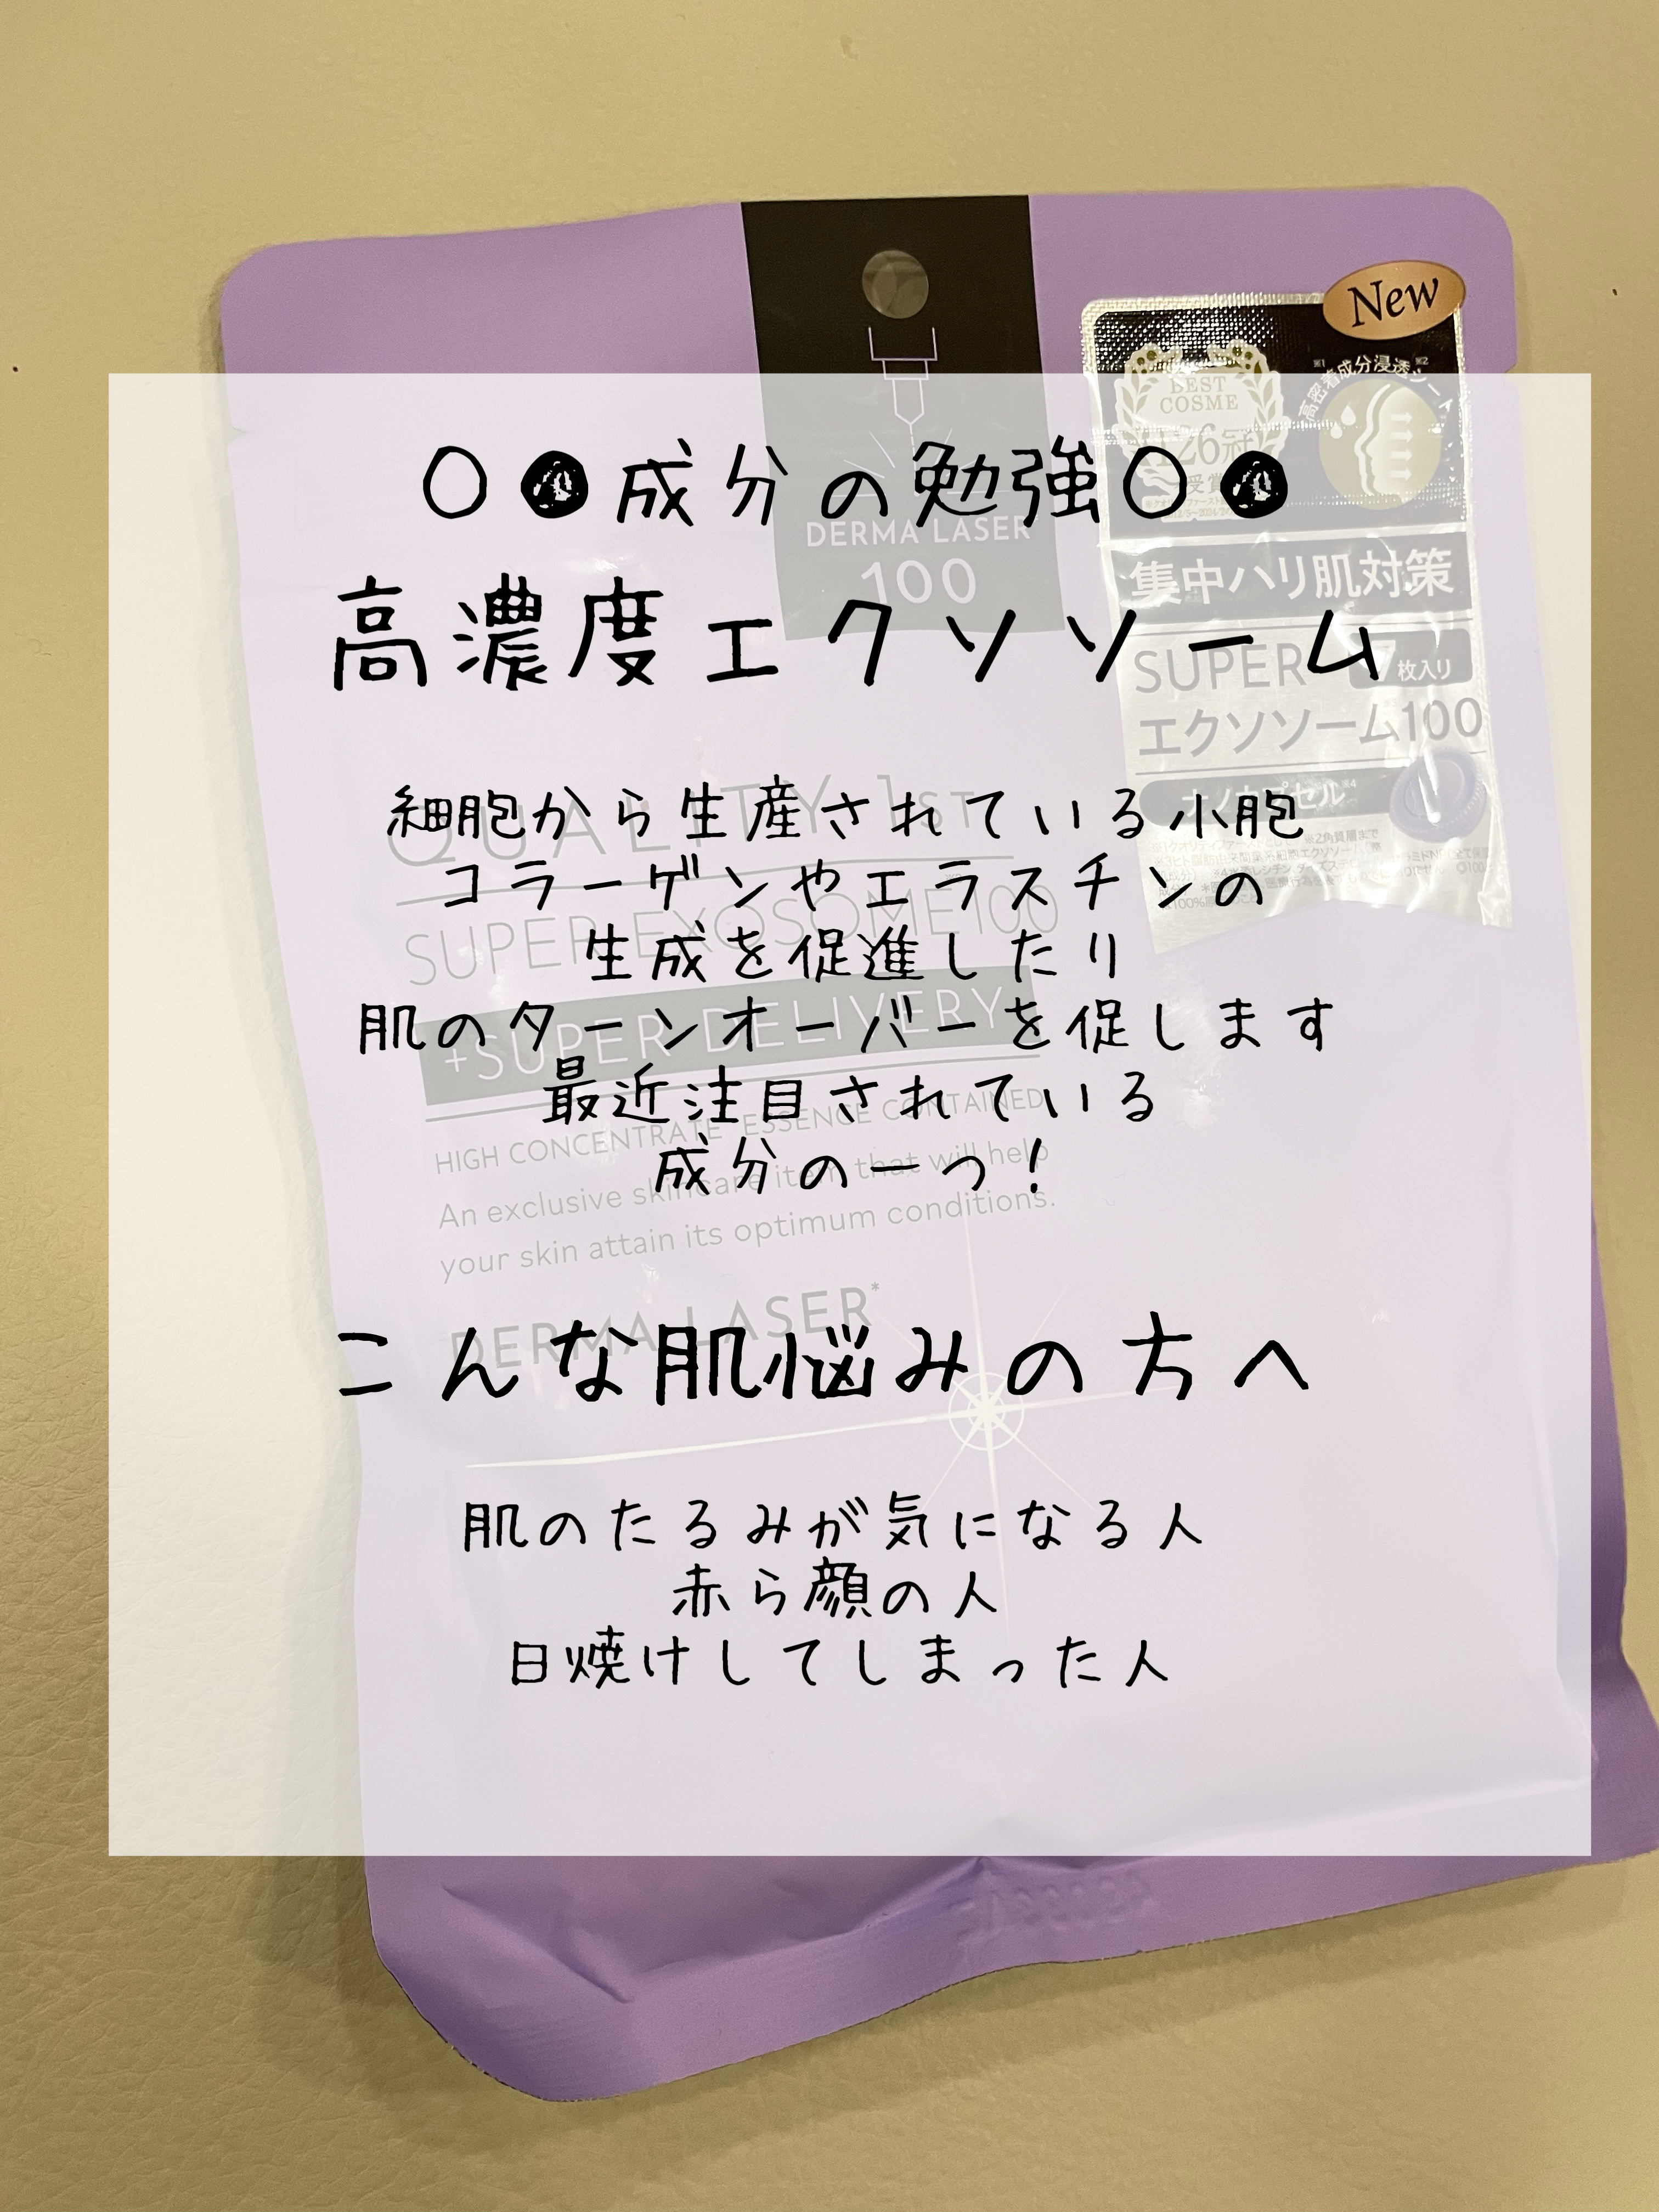 New
BEST
COSME
126冠
受賞
高密着成分浸透シート
○●成分の勉強○●
DERMA LASER
100
集中ハリ肌対策
高濃度エクソソーム
SUPER 7枚入り
エクソソーム100
ナノカプセル
QUALITY 1ST
細胞から生産されている小胞
コラーゲンやエラスチンの
SUPER EXOSOME100
生成を促進したり
+SUPER DELIVERY
肌のターンオーバーを促します
最近注目されている
HIGH CONCENTRATE ESSENCE CONTAINED
成分の一つ！
An exclusive skincare item that will help
your skin attain its optimum conditions.
DERMA LASER*
こんな肌悩みの方へ
肌のたるみが気になる人
赤ら顔の人
日焼けしてしまった人